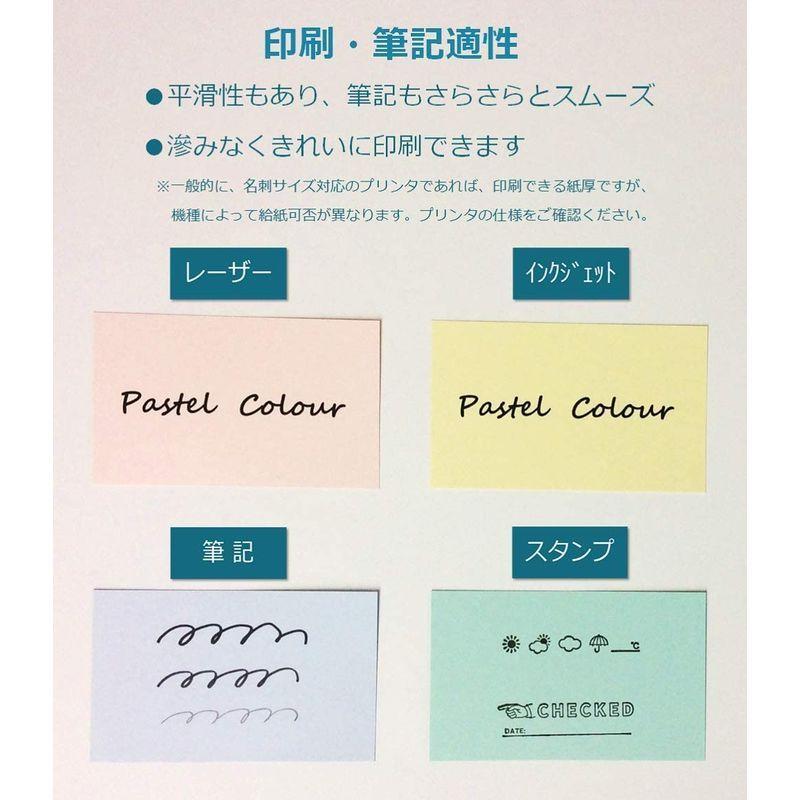 印刷・筆記適性
●平滑性もあり、筆記もさらさらとスムーズ
●滲みなくきれいに印刷できます
※一般的に、名刺サイズ対応のプリンタであれば、印刷できる紙厚ですが、
機種によって給紙可否が異なります。プリンタの仕様をご確認ください。
レーザー
ｲﾝｸｼﾞｪｯﾄ
Pastel Colour
Pastel Colour
筆 記
スタンプ
℃
CHECKED
DATE: